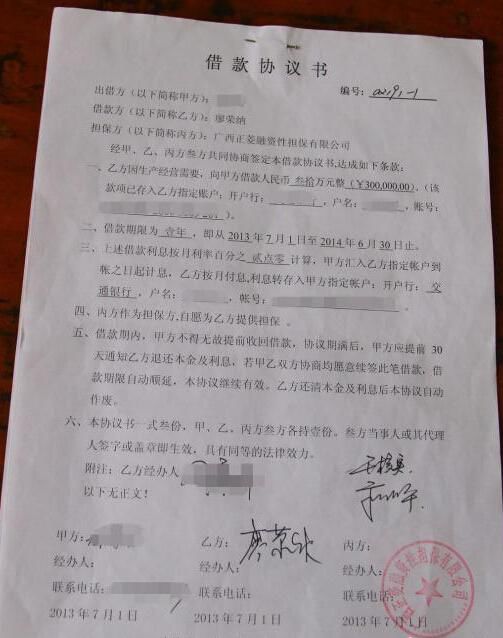 借款协议书
编号：
出借方（以下简称甲方）：
借款方（以下简称乙方）：廖荣纳
担保方（以下简称丙方）：广西正菱融资性担保有限公司
经甲、乙、丙方叁方共同协商签定本借款协议书,达成如下条款:
一、乙方因生产经营需要，向甲方借款人民币 叁拾万元整（¥300,000.00），（该
款项已存入乙方指定账户：开户行： ，户名： ，账号：
）。
二、借款期限为 壹年 ，即从 2013 年 7 月 1 日至 2014 年 6 月 30 日止。
三、上述借款利息按月利率百分之 贰点零 计算，甲方汇入乙方指定帐户到
帐之日起计息，乙方按月付息,利息转存入甲方指定帐户：开户行： 交
通银行 ，户名： ，帐号：
四、丙方作为担保方,自愿为乙方提供担保 。
五、借款期内，甲方不得无故提前收回借款，协议期满后，甲方应提前 30
天通知乙方退还本金及利息，若甲乙双方协商均愿意续签此笔借款，借
款期限自动顺延，本协议继续有效。乙方还清本金及利息后本协议自动
作废。
六、本协议书一式叁份，甲、乙、丙方叁方各持壹份。叁方当事人或其代理
人签字或盖章即生效，具有同等的法律效力。
附注：乙方经办人
以下无正文！
甲方： 乙方： 丙方：
经办人： 经办人： 经办人：
联系电话： 联系电话： 联系电话：
2013 年 7 月 1 日 2013 年 7 月 1 日 2013 年 7 月 1 日